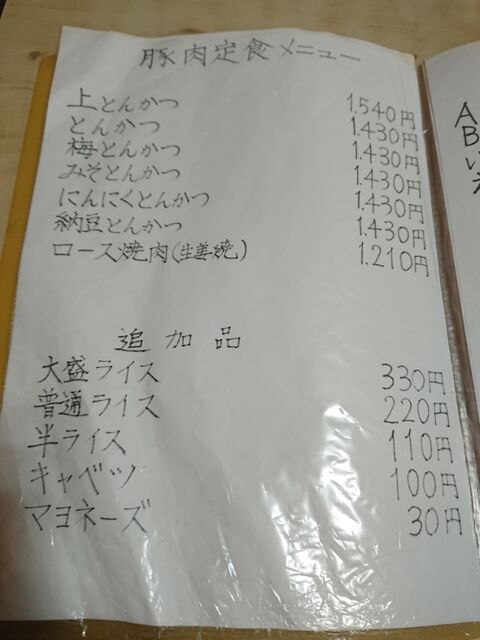 豚肉定食メニュー
上とんかつ 1.540円
とんかつ 1.430円
梅とんかつ 1.430円
みそとんかつ 1.430円
にんにくとんかつ 1.430円
納豆とんかつ 1.430円
ロース焼肉(生姜焼) 1.210円
追加品
大盛ライス 330円
普通ライス 220円
半ライス 110円
キャベツ 100円
マヨネーズ 30円
A
B
い